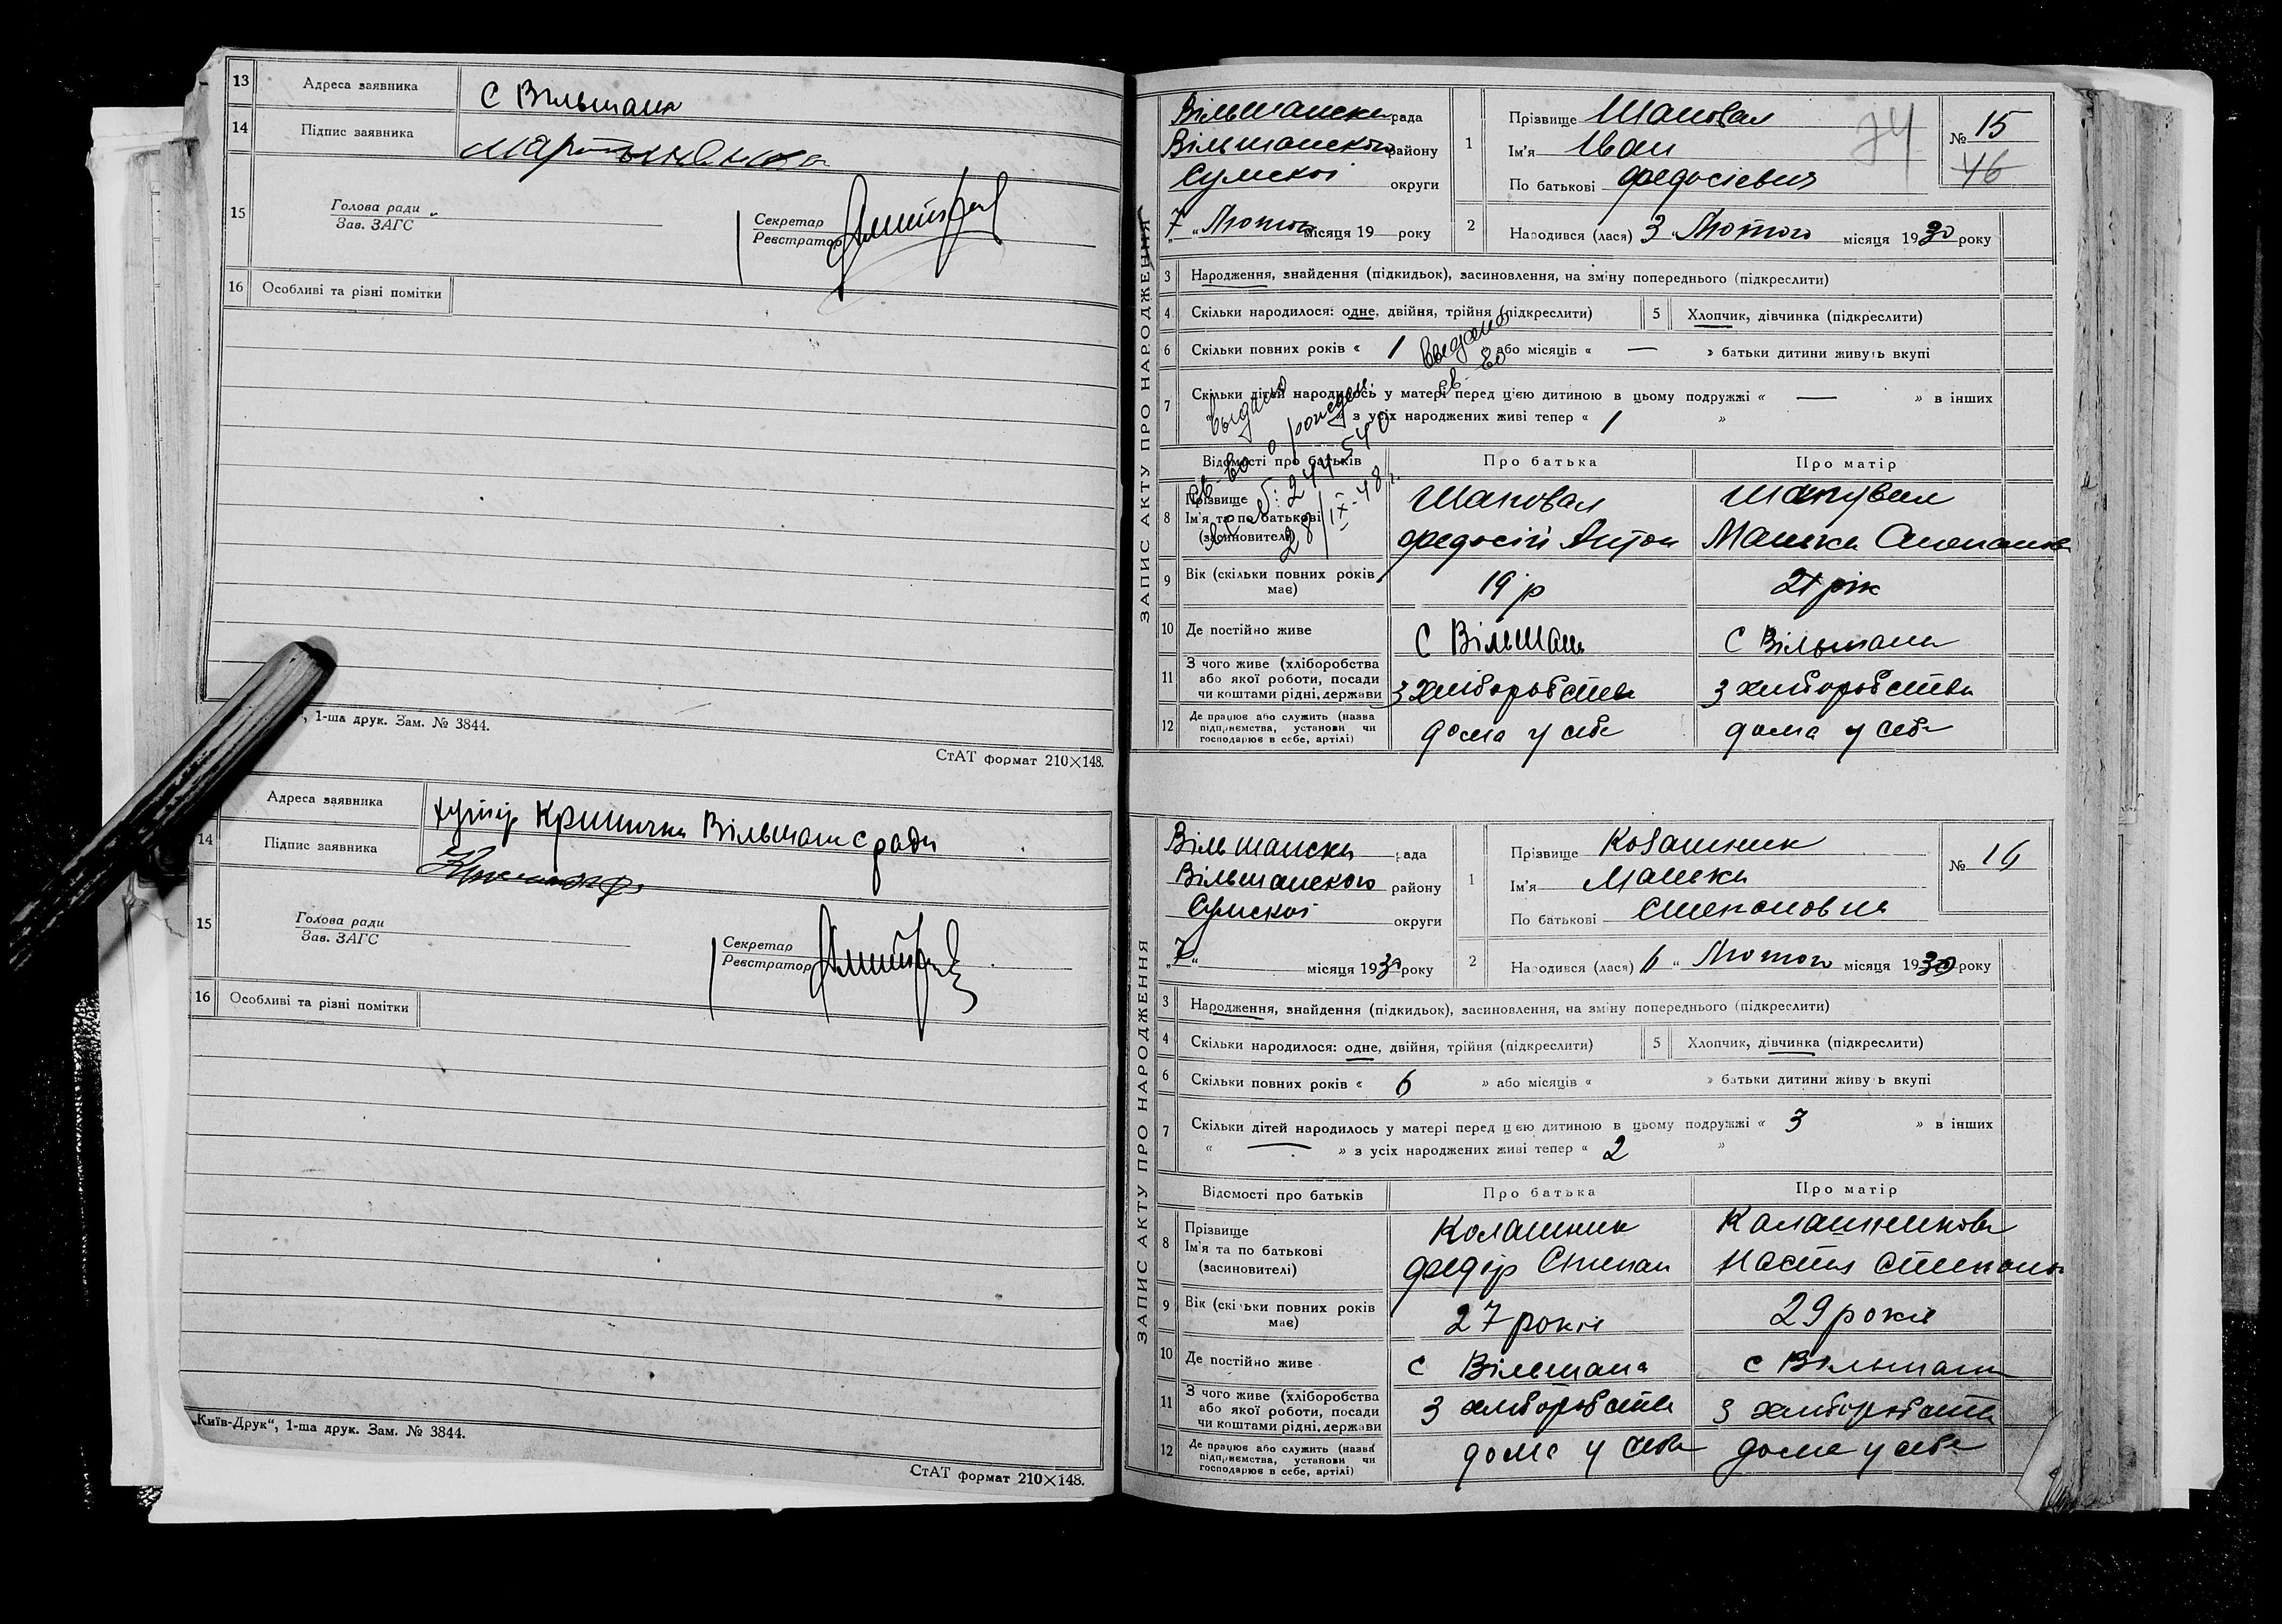 13 Адреса заявника С Вільшана
14 Підпис заявника
15 Голова ради
Зав. ЗАГС
Секретар
Реєстратор
16 Особливі та різні помітки
1-ша друк. Зам. № 3844.
СтАТ формат 210×148.
Адреса заявника хутір Криничка Вільшан с ради
14 Підпис заявника
15 Голова ради
Зав. ЗАГС
Секретар
Реєстратор
16 Особливі та різні помітки
„Київ-Друк“, 1-ша друк. Зам. № 3844.
СтАТ формат 210×148.
ЗАПИС АКТУ ПРО НАРОДЖЕННЯ
Вільшанска рада
Вільшанского району
Сумскоі округи
„7“ Лютого місяця 19 року
1 Прізвище Шаповал
Ім'я Іван
По батькові Федосієвич
74
№ 15
46
2 Народився (лася) 3 „ Лютого місяця 1930 року
3 Народження, знайдення (підкидьок), засиновлення, на зміну попереднього (підкреслити)
4 Скільки народилося: одне, двійня, трійня (підкреслити) 5 Хлопчик, дівчинка (підкреслити)
6 Скільки повних років « 1 » або місяців « — » батьки дитини живуть вкупі
7 Скільки дітей народилось у матері перед цією дитиною в цьому подружжі « — » в інших
» з усіх народжених живі тепер « 1 »
выдано
св-во о рожден.
28/IX-48 г.
выдано
св во
Відомості про батьків Про батька Про матір
8 Прізвище Шаповал Шаповал
Ім'я та по батькові
(засиновителі) Федосій Антон Манька
9 Вік (скільки повних років має) 19 р 21 рік
10 Де постійно живе С Вільшань С Вільшана
11 З чого живе (хліборобства
або якої роботи, посади
чи коштами рідні, держави З хліборобства З хліборобства
12 Де працює або служить (назва
підприємства, установи чи
господарює в себе, артілі) дома у себе дома у себе
ЗАПИС АКТУ ПРО НАРОДЖЕННЯ
Вільшанска рада
Вільшанского району
Сумскоі округи
„7“ місяця 1930 року
1 Прізвище Колашник
Ім'я Манька
По батькові Степоновна
№ 16
2 Народився (лася) 6 „ Лютого місяця 1930 року
3 Народження, знайдення (підкидьок), засиновлення, на зміну попереднього (підкреслити)
4 Скільки народилося: одне, двійня, трійня (підкреслити) 5 Хлопчик, дівчинка (підкреслити)
6 Скільки повних років « 6 » або місяців « » батьки дитини живуть вкупі
7 Скільки дітей народилось у матері перед цією дитиною в цьому подружжі « 3 » в інших
« — » з усіх народжених живі тепер « 2 »
Відомості про батьків Про батька Про матір
8 Прізвище Колашник Калашникова
Ім'я та по батькові
(засиновителі) Федір Степан Настя Степано
9 Вік (скільки повних років має) 27 років 29 років
10 Де постійно живе с Вільшана с Вільшана
11 З чого живе (хліборобства
або якої роботи, посади
чи коштами рідні, держави З хліборобства З хліборобства
12 Де працює або служить (назва
підприємства, установи чи
господарює в себе, артілі) дома у себе дома у себе